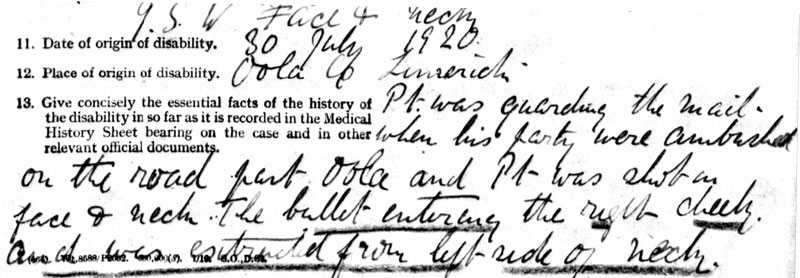 G.S.W Face & neck
11. Date of origin of disability. 30 July 1920.
12. Place of origin of disability. Oola Co Limerick
13. Give concisely the essential facts of the history of Pt. was guarding the mail.
the disability in so far as it is recorded in the Medical
History Sheet bearing on the case and in other when his party were ambushed
relevant official documents.
on the road past Oola and Pt was shot in
face & neck. The bullet entering the right cheek.
and was extracted from left side of neck.